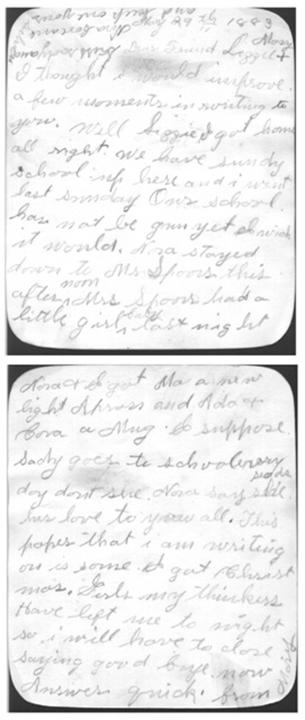 May 29th 1883
Dear Friend Lizzie &
Mary
I thought i would improve
a few moments in writing to
you. Well Lizzie I got home
all right. We have sundy
school up here and i went
last sunday Our school
has not be gun yet i wish
it would. Nora stayed
down to Mr Spoors this
after noon Mrs Spoors had a
little girl last night
Nora & I got Ma a new
light dress and Ada &
Cora a Mug. I suppose
Sady goes to school every
day dont she. Nora say
her love to you all. This
paper that i am writing
on is some I got Christ
mas. Girls my thinkers
have left me to night
so i will have to close
saying good bye now
Answer quick. from